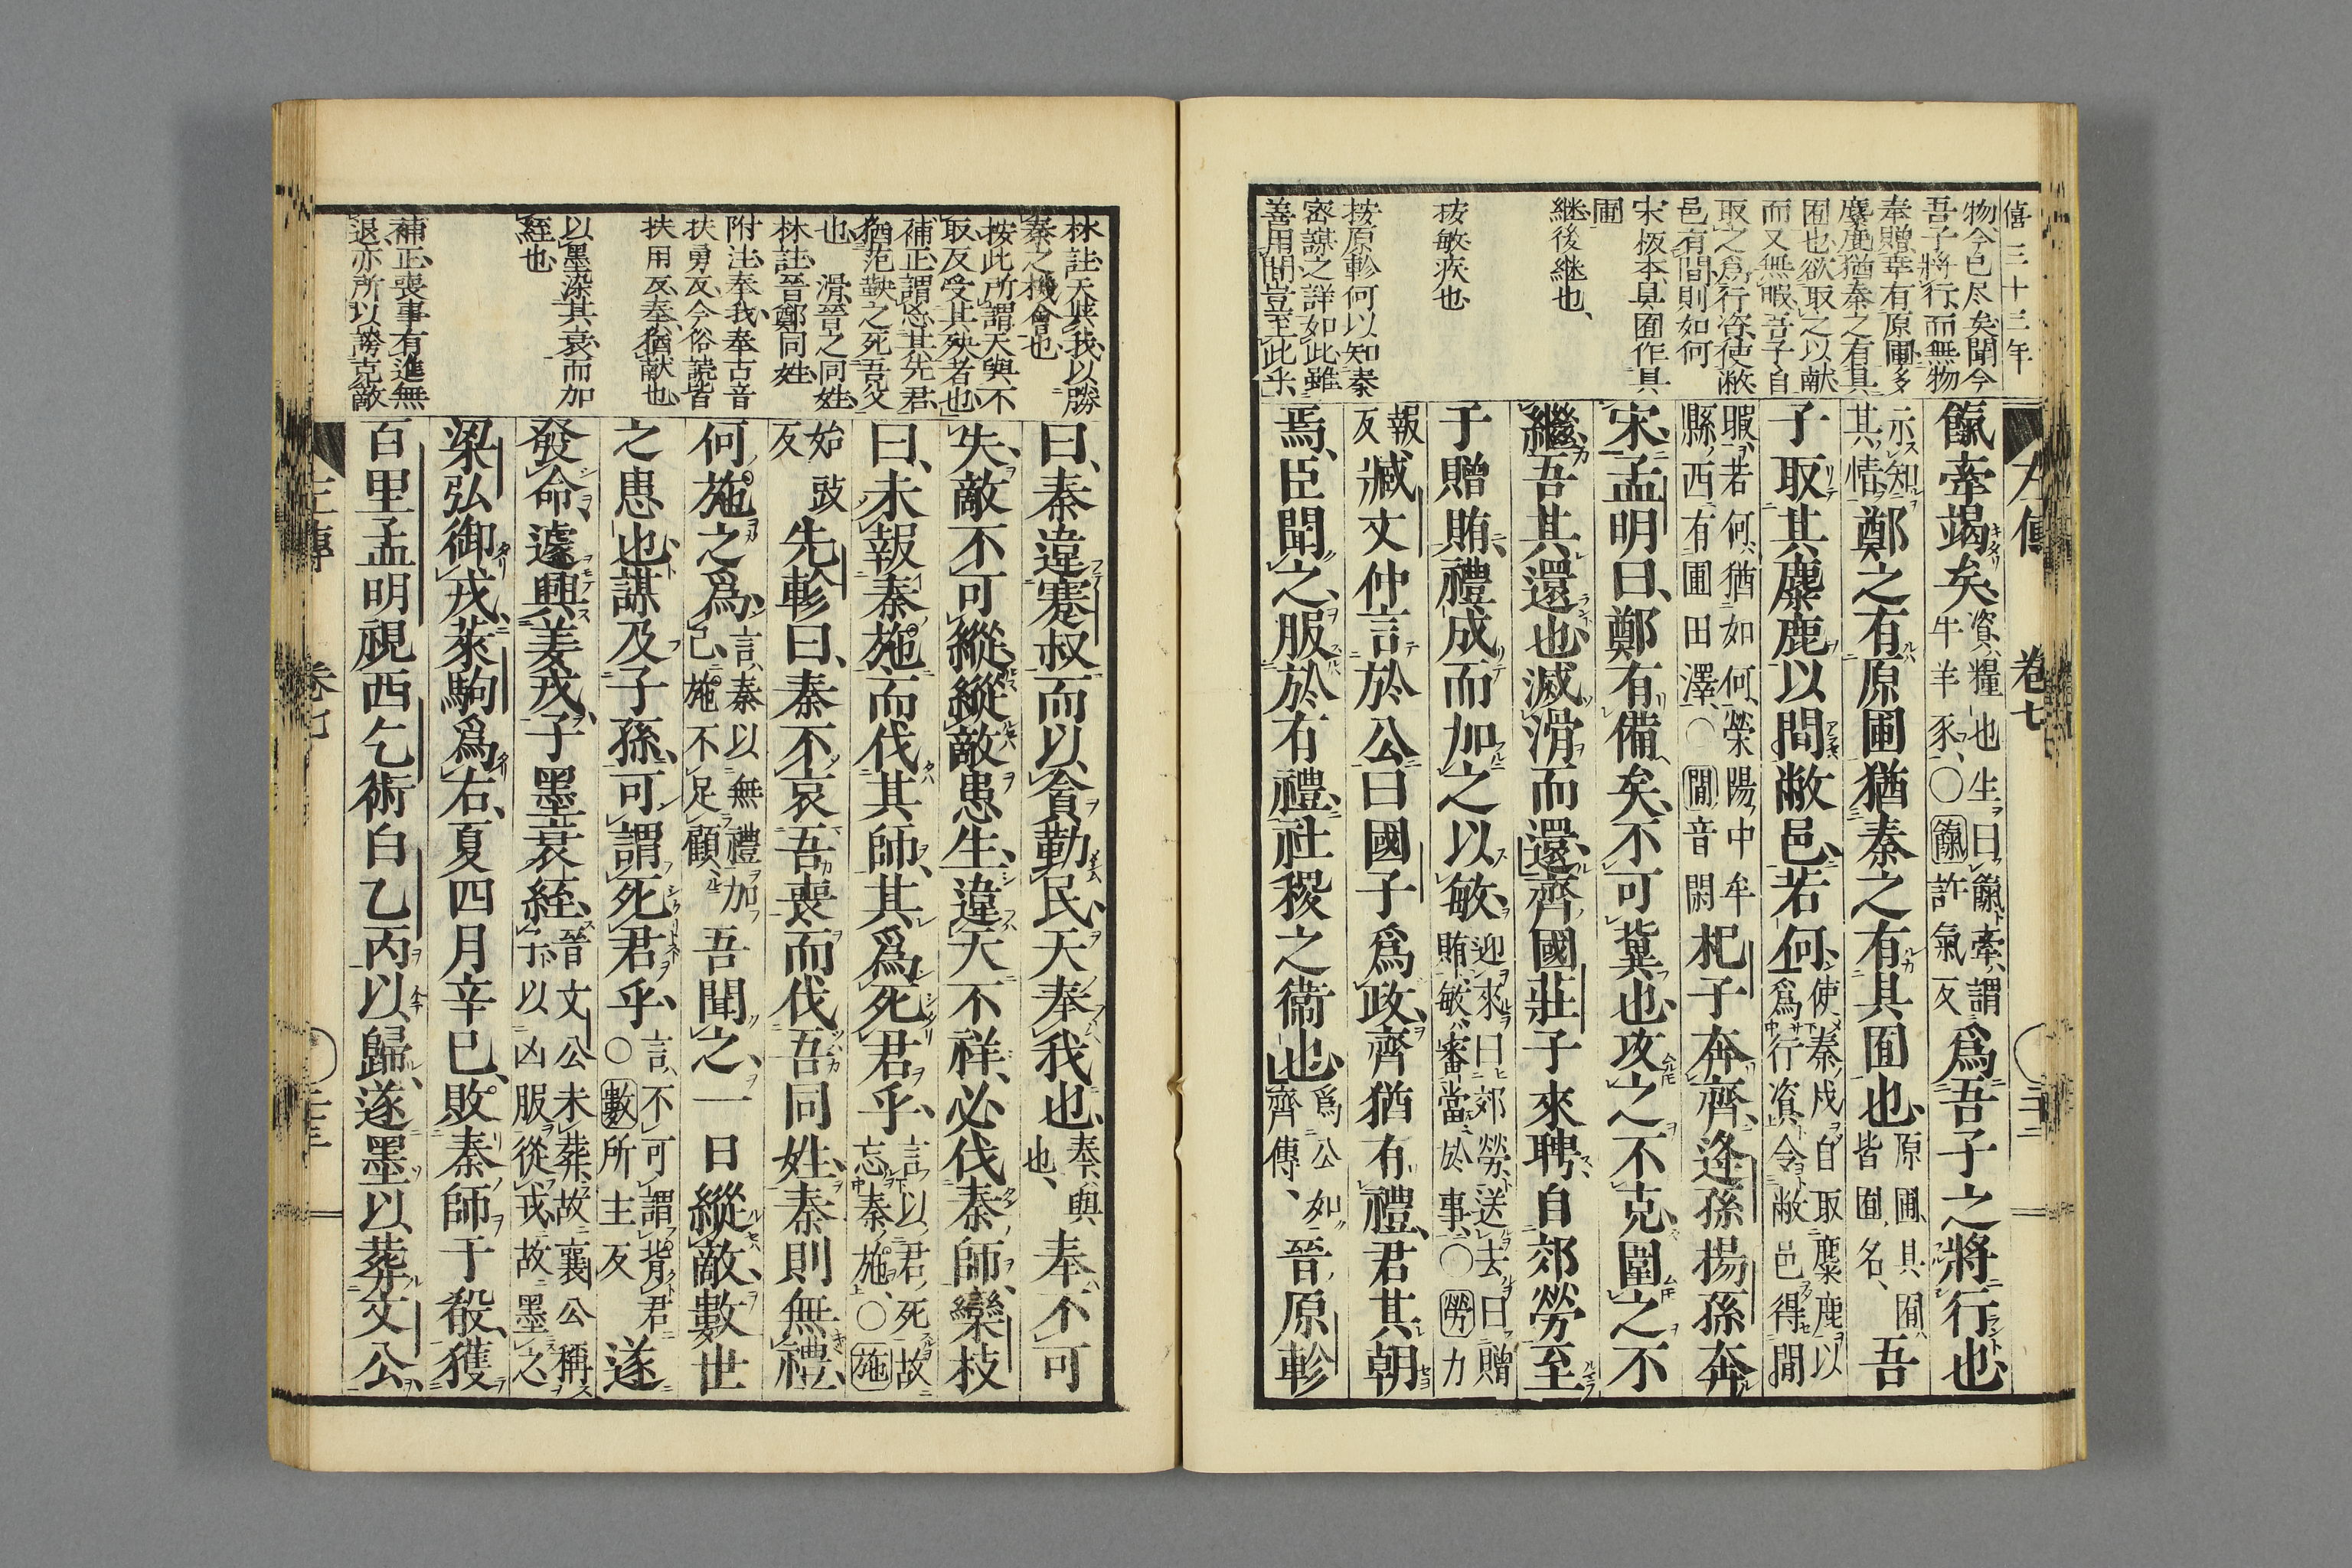 僖三十三年
物今已尽矣聞今
吾子將行而無物
奉贈幸有原圃多
麋鹿猶秦之有具
囿也欲取之以献
而又無暇吾子自
取之爲行資使敝
邑有間則如何
宋板本具囿作具
圃
継後継也
按敏疾也
按原軫何以知秦
密謀之詳如此雖
善用間豈至此乎
左傳 卷七
餼牽竭矣資糧也生曰餼牽謂牛羊豕〇餼許氣反爲吾子之將行也
示知其情鄭之有原圃猶秦之有具囿也原圃具囿皆囿名吾
子取其麋鹿以間敝邑若何使秦戍自取麋鹿以爲行資令敝邑得間
暇若何猶如何滎陽中牟縣西有圃田澤〇間音閑杞子奔齊逢孫揚孫奔
宋孟明曰鄭有備矣不可冀也攻之不克圍之不
繼吾其還也滅滑而還齊國莊子來聘自郊勞至
于贈賄禮成而加之以敏迎來曰郊勞送去曰贈賄敏審當於事〇勞力
報反臧文仲言於公曰國子爲政齊猶有禮君其朝
焉臣聞之服於有禮社稷之衞也爲公如齊傳晉原軫
林註天與我以勝
秦之機會也
按此所謂天與不
取反受其殃者也
補正謂忘其先君
猶范鞅之死吾父
也 滑晉之同姓
林註晉鄭同姓
附注奉我奉古音
扶勇反今俗読皆
扶用反奉猶献也
以墨染其衰而加
絰也
補正喪事有進無
退亦所以謗克敵
曰秦違蹇叔而以貪勤民天奉我也奉與也奉不可
失敵不可縱縱敵患生違天不祥必伐秦師欒枝
曰未報秦施而伐其師其爲死君乎言以君死故忘秦施〇施
始豉反先軫曰秦不哀吾喪而伐吾同姓秦則無禮
何施之爲言秦以無禮加己施不足顧吾聞之一日縱敵數世
之患也謀及子孫可謂死君乎言不可謂背君〇數所主反遂
發命遽興姜戎子墨衰絰晉文公未葬故襄公稱子以凶服從戎故墨之
梁弘御戎萊駒爲右夏四月辛巳敗秦師于殽獲
百里孟明視西乞術白乙丙以歸遂墨以葬文公